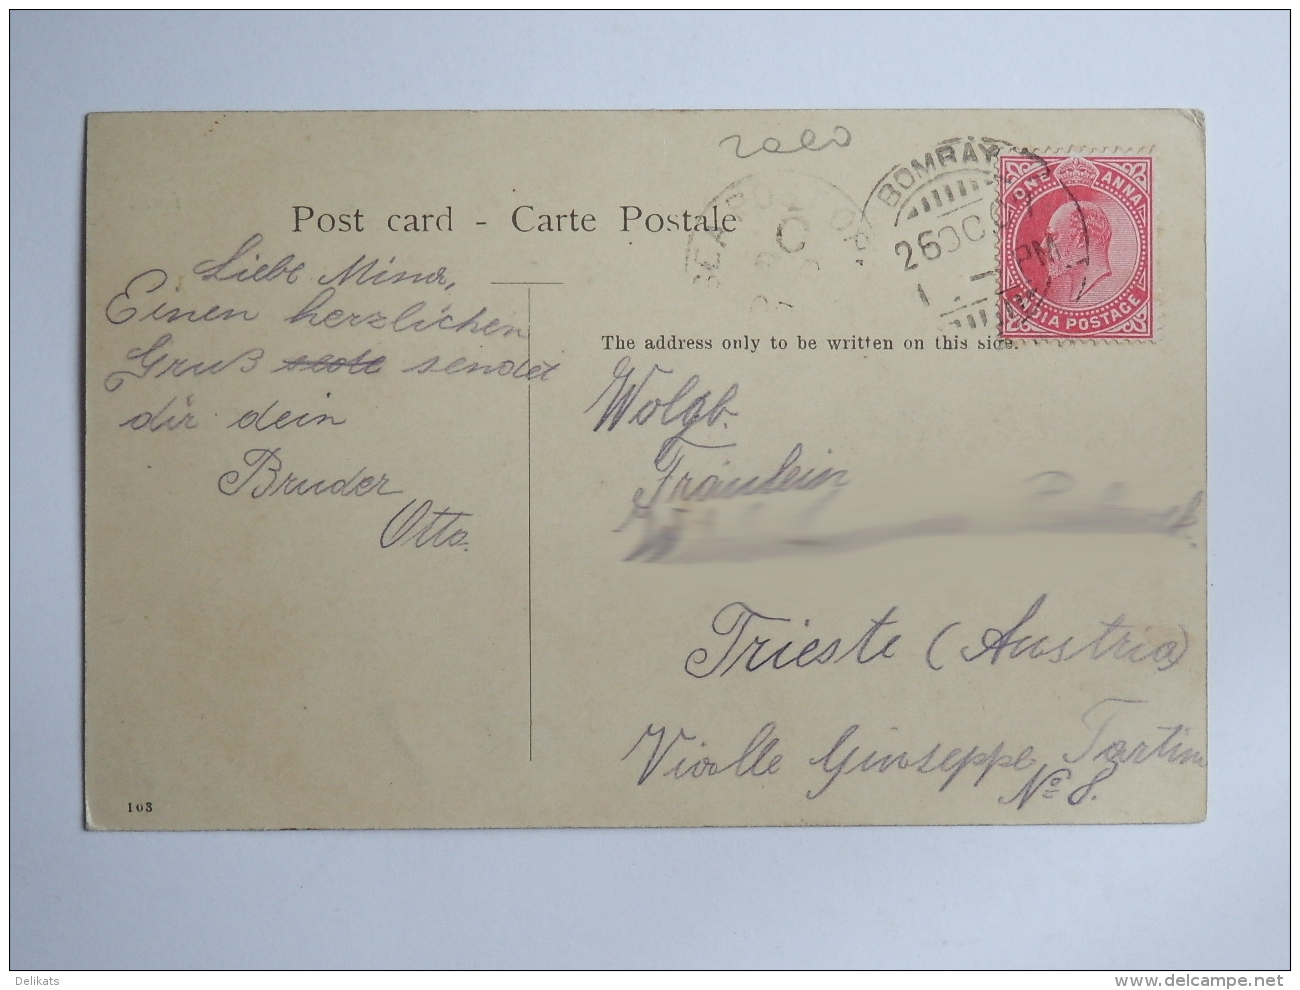 2000
Post card - Carte Postale
SEA POST OF
C
BOMBAY
26 OC 07
1 - PM
ONE ANNA
INDIA POSTAGE
The address only to be written on this side.
Liebe Mina,
Einen herzlichen
Gruß sendet
dir dein
Bruder
Otto.
Wolgb.
Fräulein
Trieste (Austria)
Vialle Giuseppe Tartini
No 8.
103
Delikats
www.delcampe.net